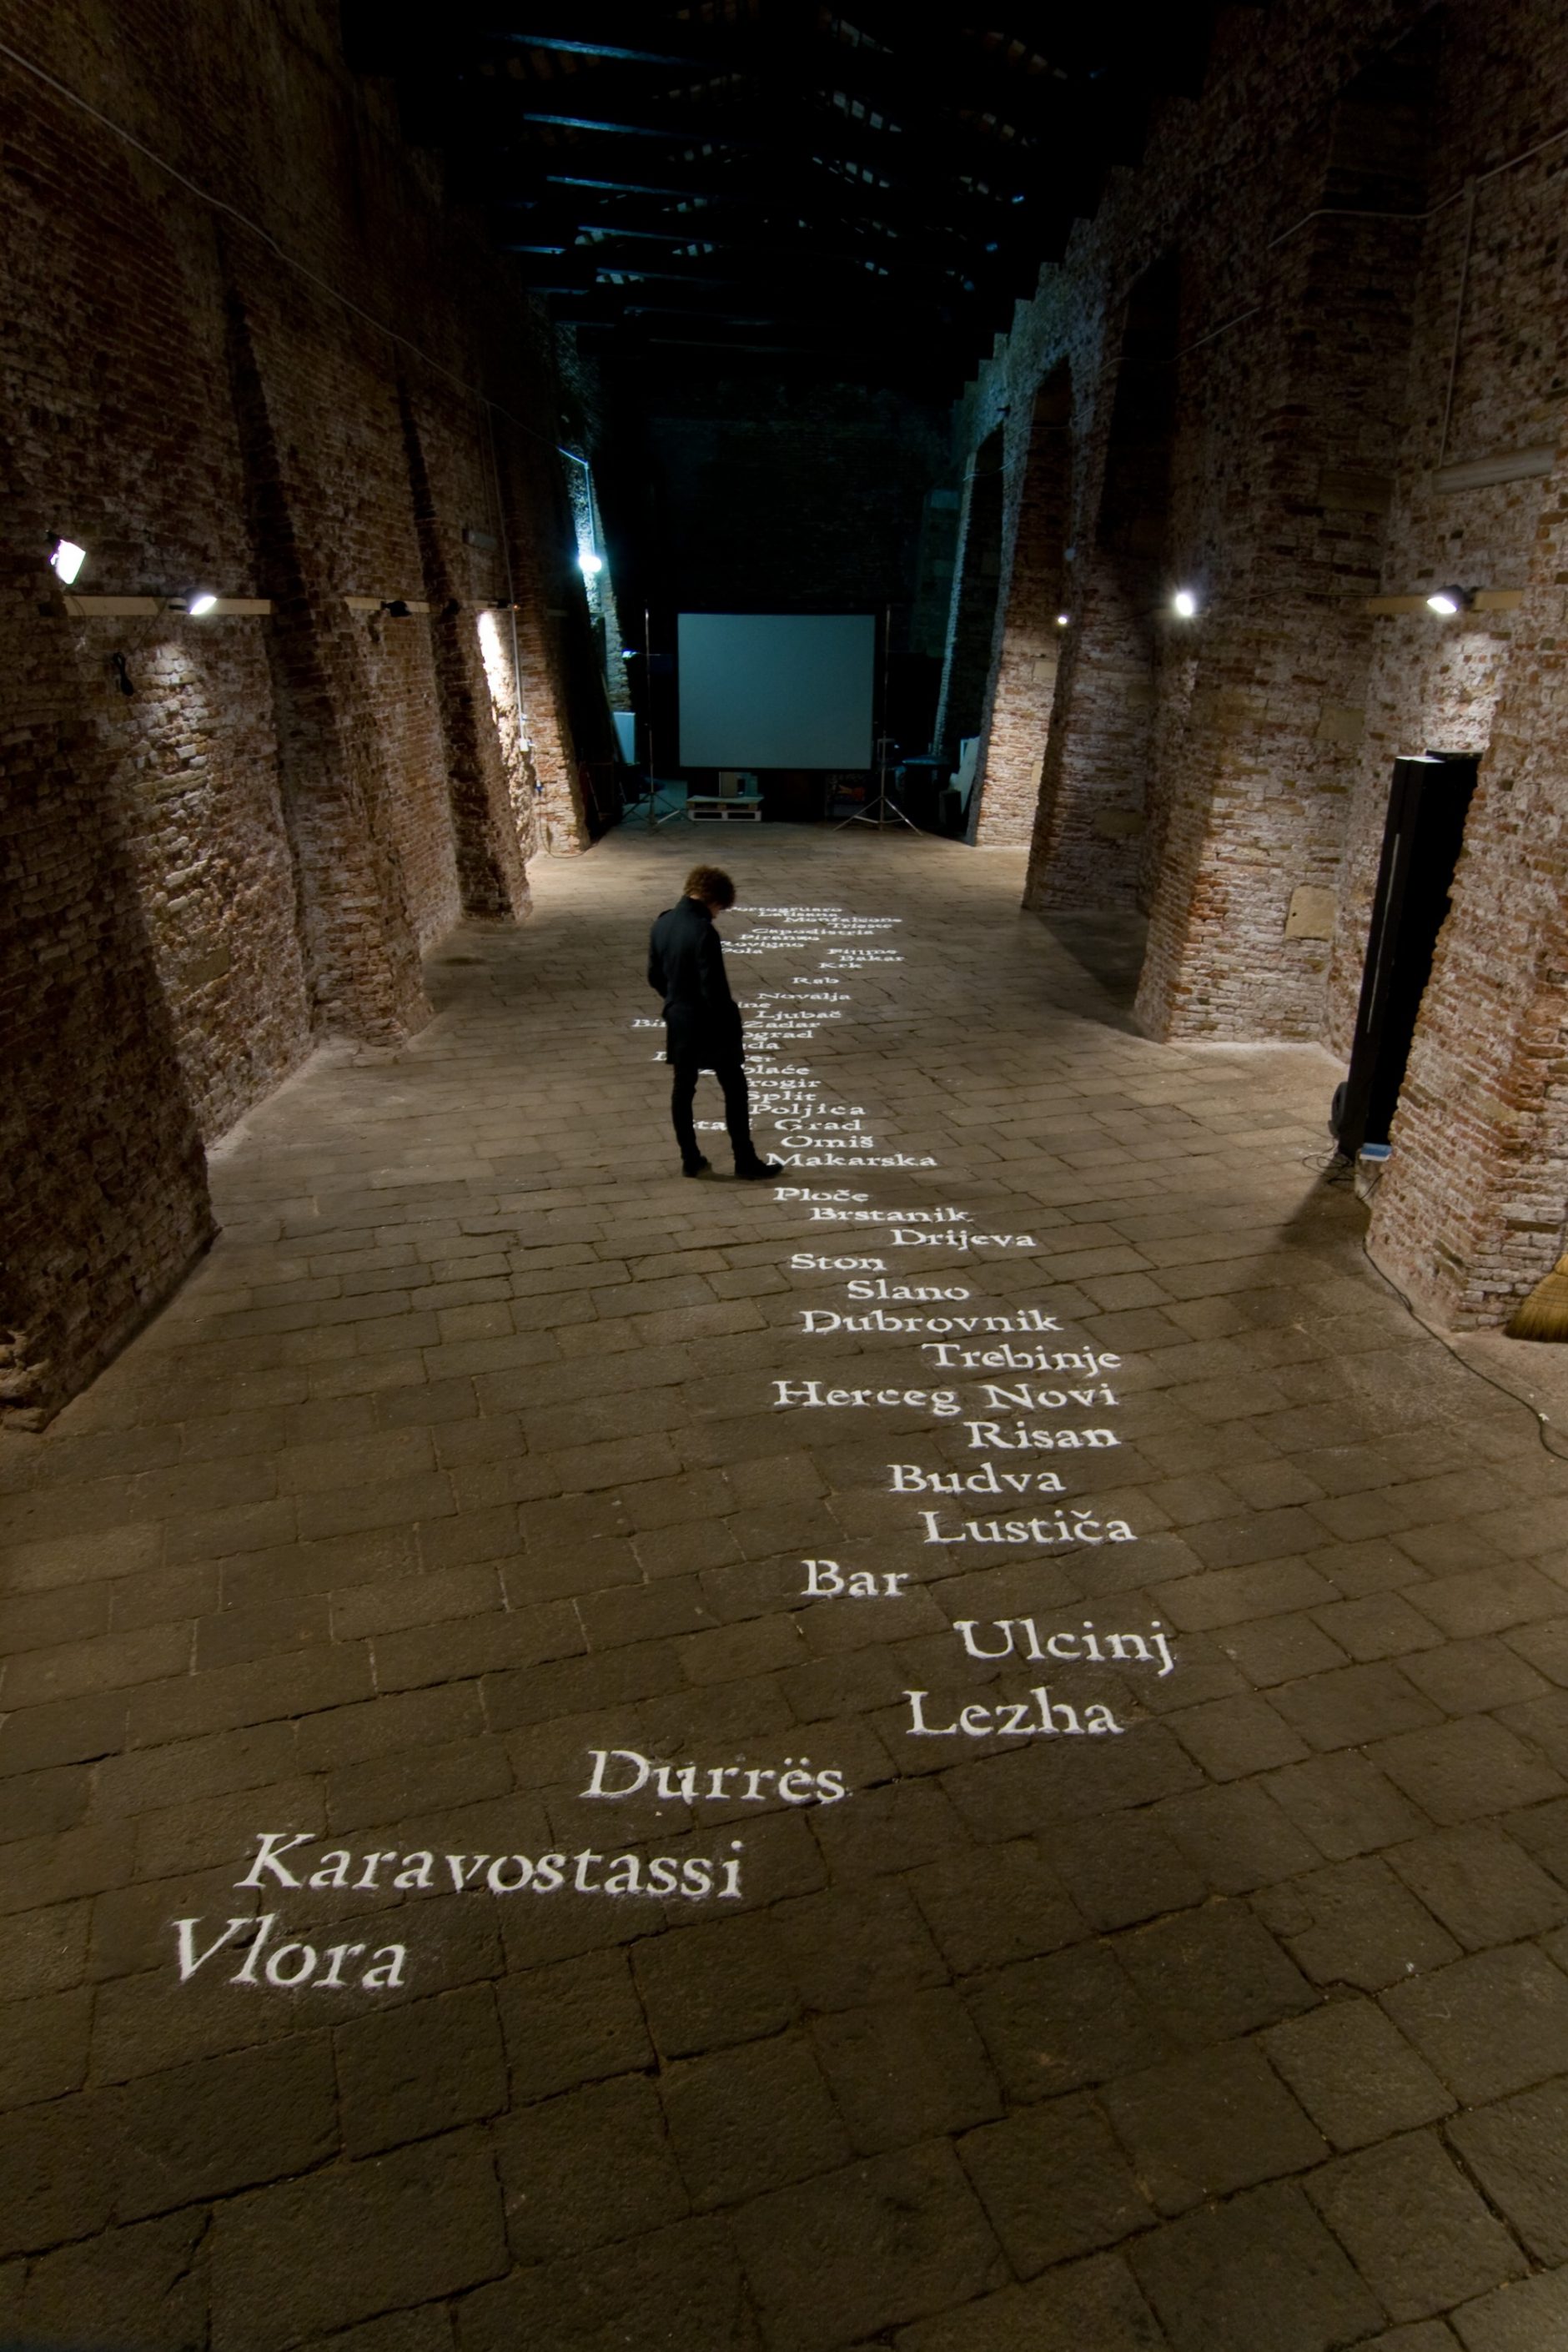 Portogruaro
Latisana
Monfalcone
Trieste
Capodistria
Pirano
Rovigno
Pola Fiume
Bakar
Krk
Rab
Novalja
Ljubač
Zadar
Split
Poljica
Grad
Omiš
Makarska
Ploče
Brstanik
Drijeva
Ston
Slano
Dubrovnik
Trebinje
Herceg Novi
Risan
Budva
Lustiča
Bar
Ulcinj
Lezha
Durrës
Karavostassi
Vlora